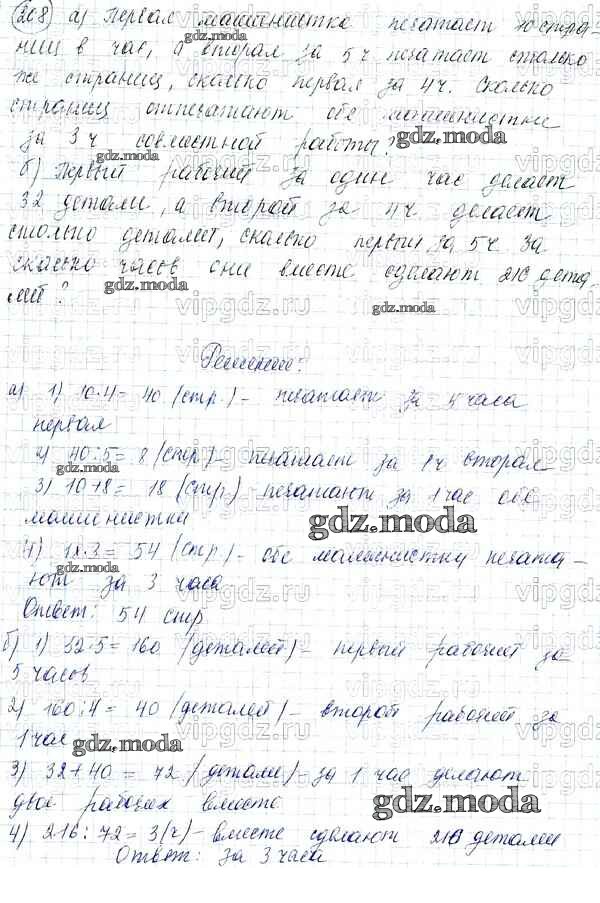 268 а) Первая машинистка печатает 10 стра-
ниц в час, а вторая за 5 ч печатает столько
же страниц, сколько первая за 4 ч. Сколько
страниц отпечатают обе машинистки
за 3 ч совместной работы?
б) Первый рабочий за один час делает
32 детали, а второй за 4 ч делает
столько деталей, сколько первый за 5 ч. За
сколько часов они вместе сделают 216 дета
лей?
Решение:
а) 1) 10·4= 40 (стр.) - печатает за 4 часа
первая
2) 40:5= 8 (стр) - печатает за 1 ч вторая
3) 10+8= 18 (стр) - печатают за 1 час обе
машинистки
4) 18·3= 54 (стр) - обе машинистки печата-
ют за 3 часа
Ответ: 54 стр
б) 1) 32·5= 160 (деталей) - первый рабочий за
5 часов
2) 160:4= 40 (деталей) - второй рабочий за
1 час
3) 32+40 = 72 (детали) - за 1 час делают
двое рабочих вместе
4) 216: 72= 3(ч) - вместе сделают 216 деталей
Ответ: за 3 часа
gdz.moda
vipgdz.ru